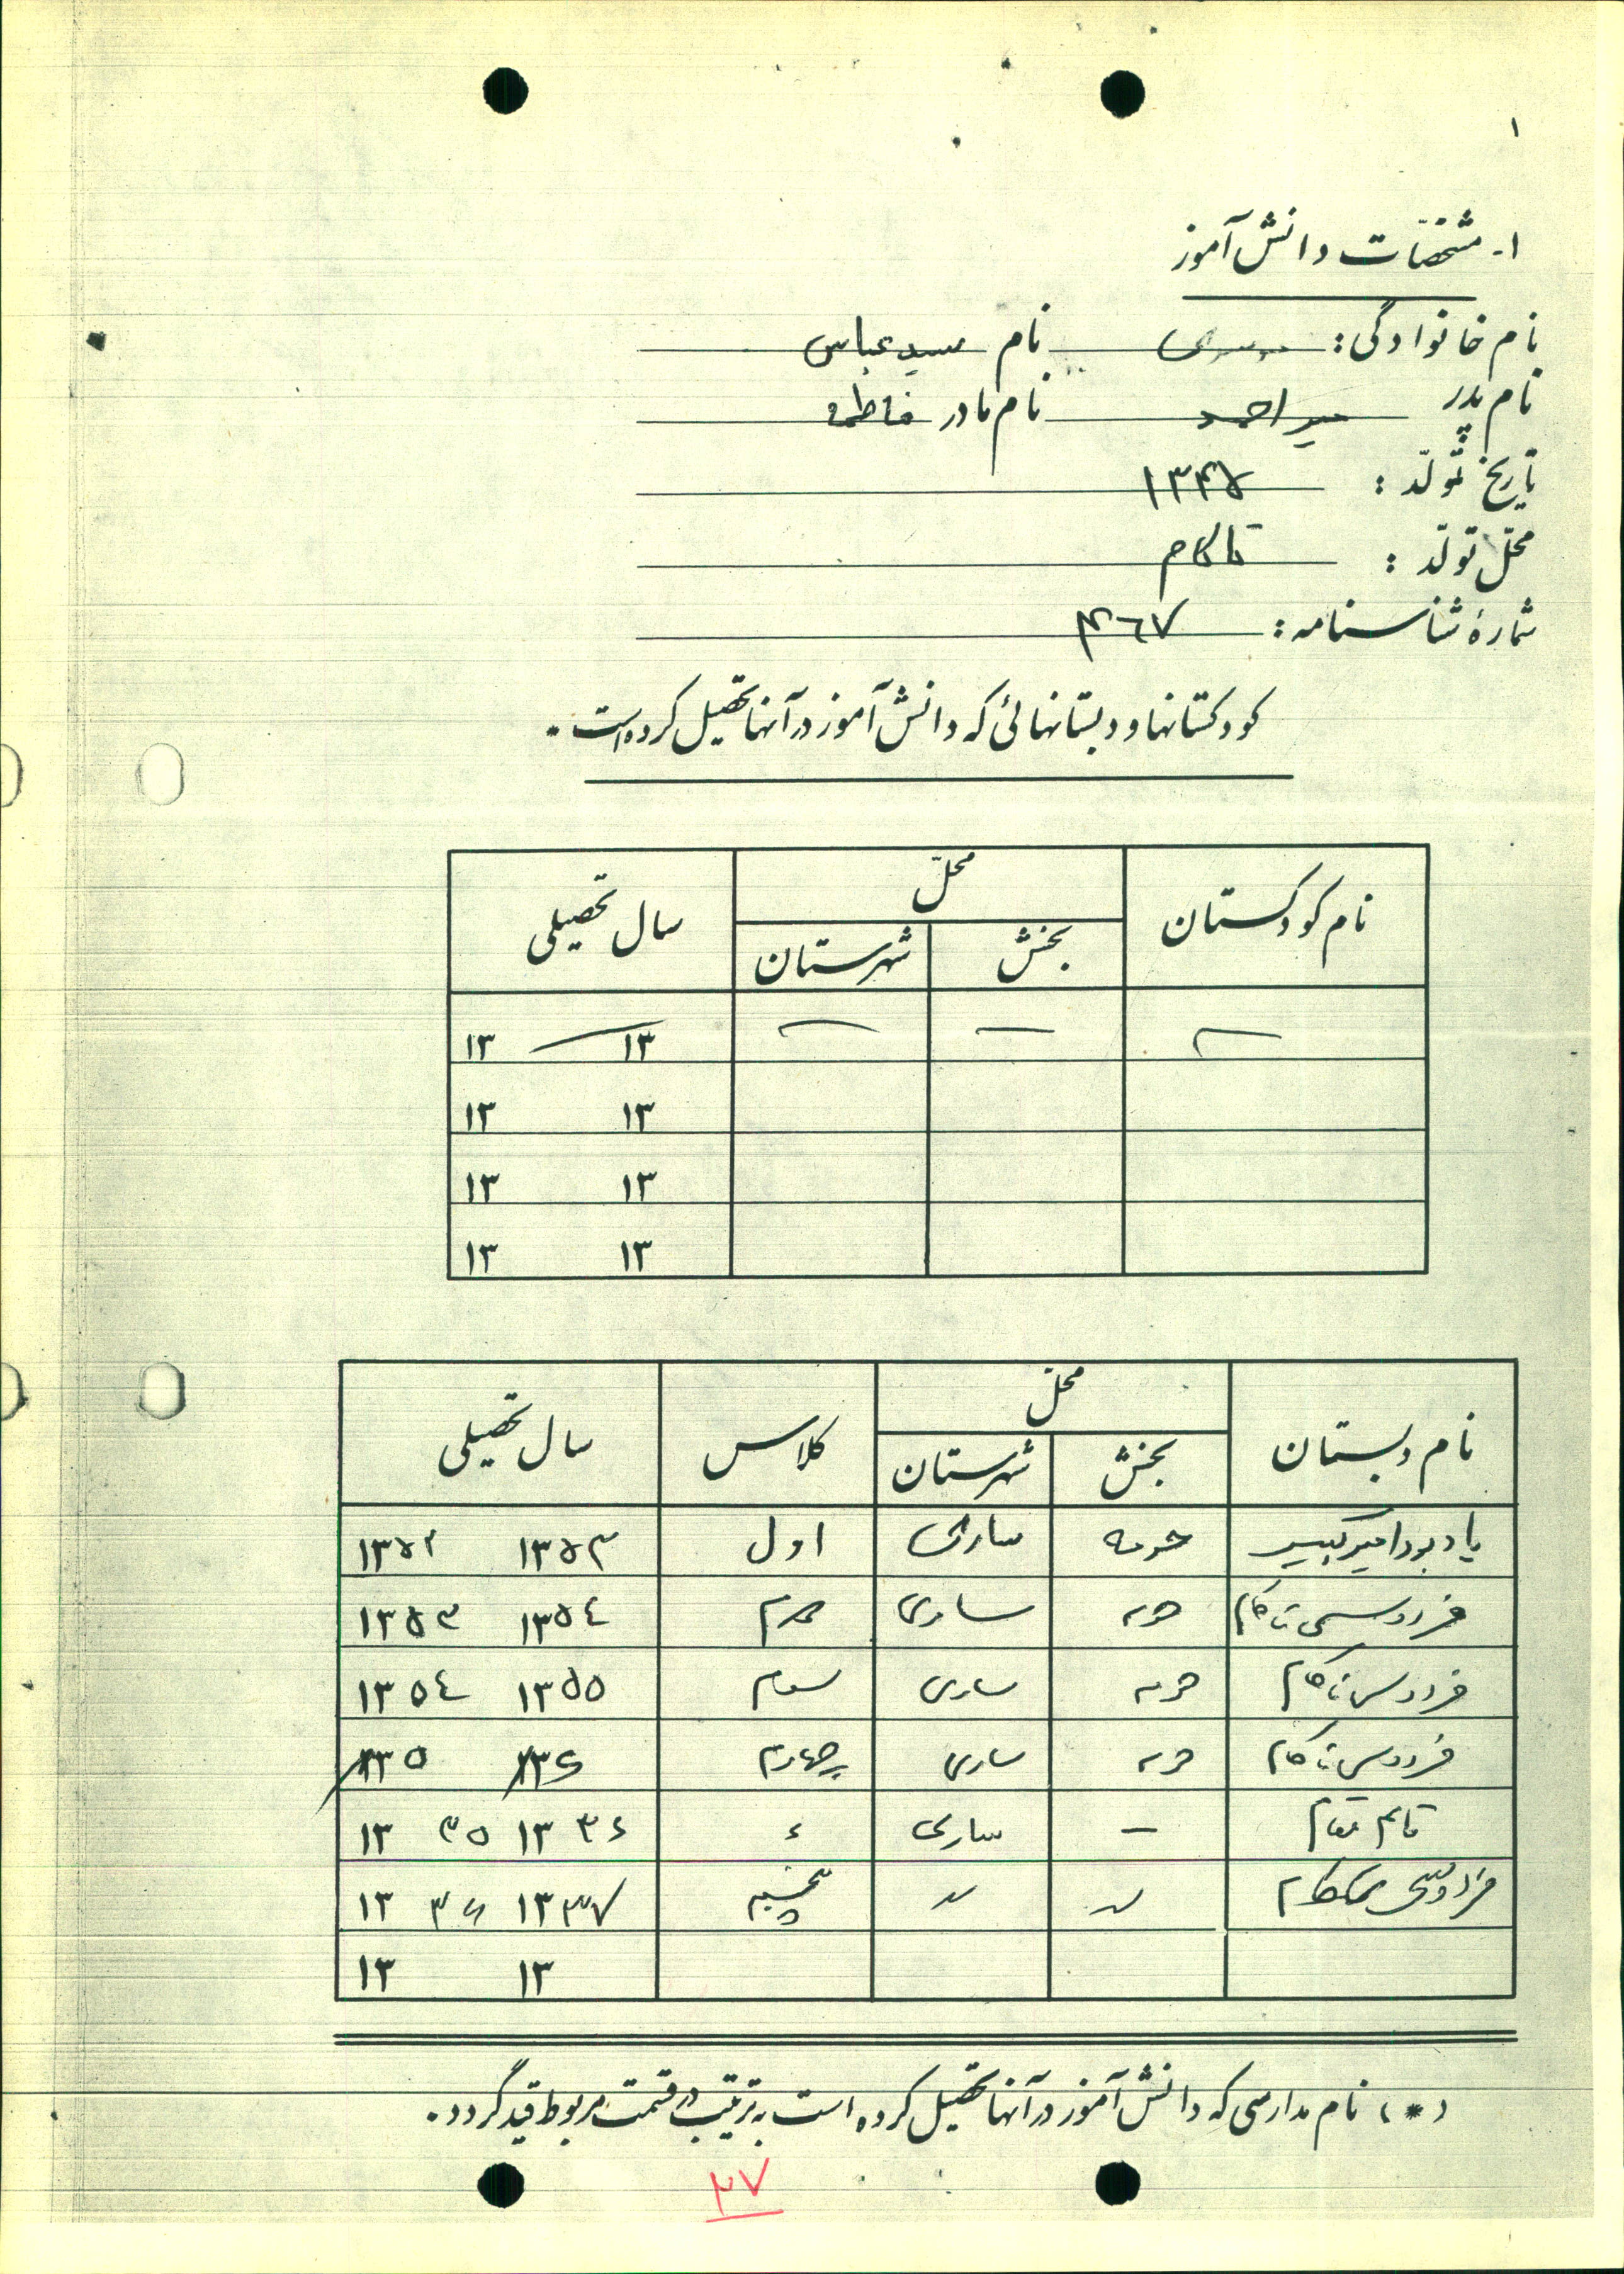 ۱
۱- مشخصات دانش‌آموز
نام خانوادگی: موسوی نام سید عباس
نام پدر میراحمد نام مادر فاطمه
تاریخ تولّد: ۱۳۴۵
محلّ تولّد: تاکام
شمارهٔ شناسنامه: ۴۶۷
کودکستانها و دبستانهائی که دانش‌آموز در آنها تحصیل کرده است.
نام کودکستان محلّ سال تحصیلی
بخش شهرستان
— — — ۱۳ — ۱۳
۱۳ ۱۳
۱۳ ۱۳
۱۳ ۱۳
نام دبستان محلّ کلاس سال تحصیلی
بخش شهرستان
یادبود امیرکبیر حومه ساری اول ۱۳۵۳ ۱۳۵۲
فردوسی تاکام حومه ساری دوم ۱۳۵۴ ۱۳۵۳
فردوسی تاکام حومه ساری سوم ۱۳۵۵ ۱۳۵۴
فردوسی تاکام حومه ساری چهارم
قائم مقام — ساری ۱۳ ۳۶ ۱۳ ۳۵
فردوسی تاکام 〃 〃 پنجم ۱۳ ۳۷ ۱۳ ۳۶
۱۳ ۱۳
(*) نام مدارسی که دانش‌آموز در آنها تحصیل کرده است به ترتیب در قسمت مربوط قید گردد.
۲۷